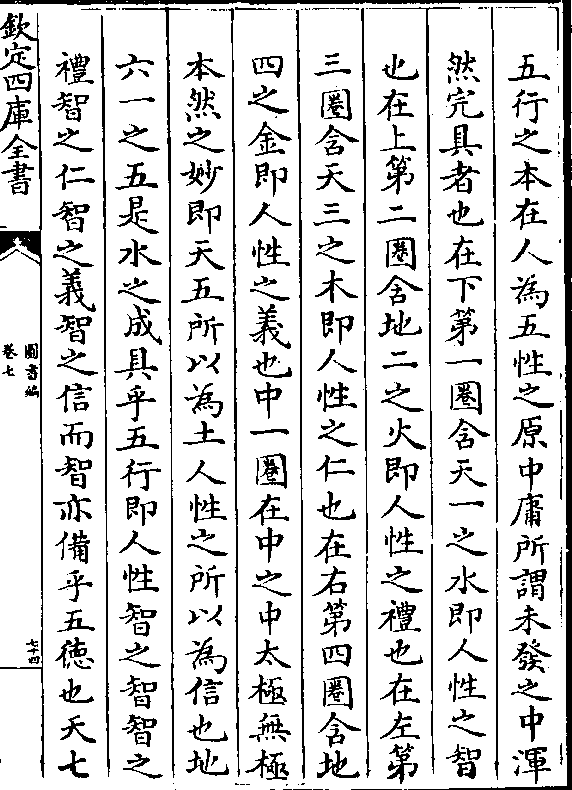 五行之本在人為五性之原中庸所謂未發之中渾
然完具者也在下第一圈含天一之水即人性之智
也在上第二圈含地二之火即人性之禮也在左第
三圈含天三之木即人性之仁也在右第四圈含地
四之金即人性之義也中一圈在中之中太極無極
本然之妙即天五所以為土人性之所以為信也地
六一之五是水之成具乎五行即人性智之智智之
禮智之仁智之義智之信而智亦備乎五德也天七
欽定四庫全書
圖書編
卷七
七十四